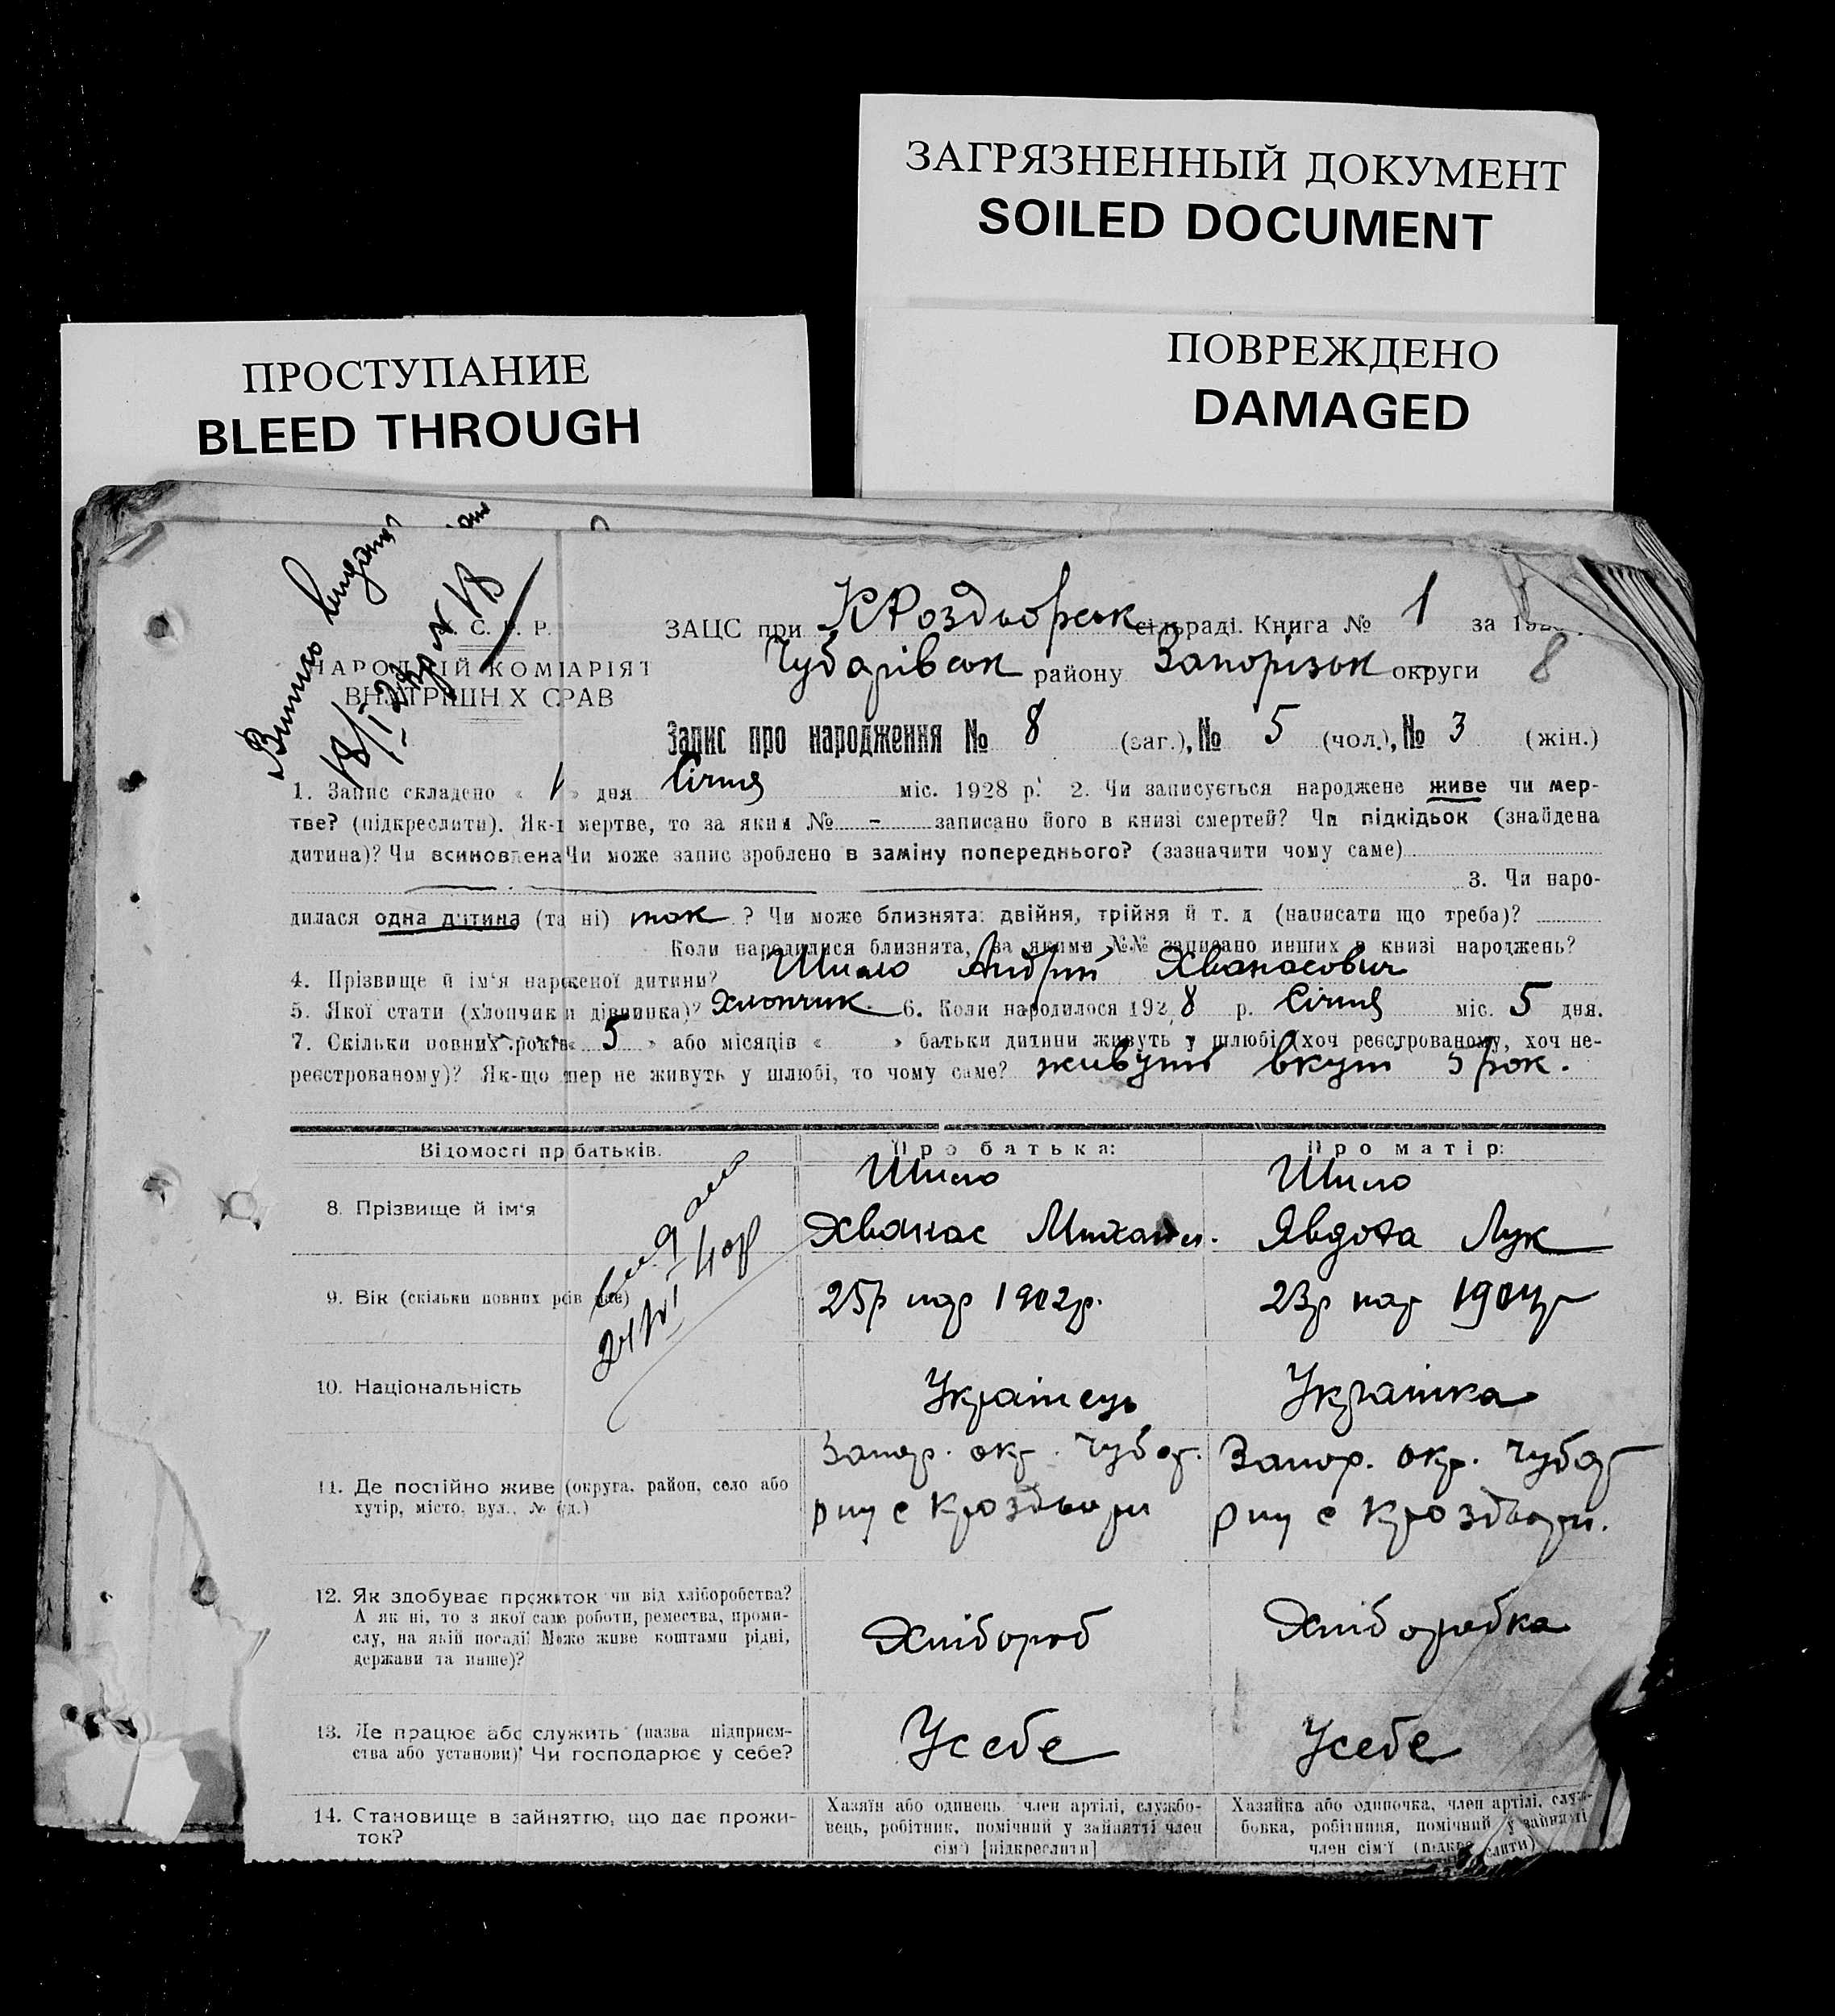 ЗАГРЯЗНЕННЫЙ ДОКУМЕНТ
SOILED DOCUMENT
ПОВРЕЖДЕНО
DAMAGED
ПРОСТУПАНИЕ
BLEED THROUGH
С. Р. Р.
НАРОДНІЙ КОМІАРІЯТ
ВНУТРІШН Х СРАВ
ЗАЦС при КРоздьорськ сільраді. Книга № 1 за
Чубарівськ району Запорізьк округи 8
Запис про народження № 8 (заг.), № 5 (чол.), № 3 (жін.)
1. Запис складено « » дня Січня міс. 1928 р. 2. Чи записується народжене живе чи мер-
тве? (підкреслити). Як- мертве, то за яким № - записано його в книзі смертей? Чи підкідьок (знайдена
дитина)? Чи всиновлена Чи може запис зроблено в заміну попереднього? (зазначити чому саме)
3. Чи наро-
дилася одна дитина (та ні) так ? Чи може близнята: двійня, трійня й т. д (написати що треба)?
Коли народилися близнята, за якими №№ записано инших в книзі народжень?
4. Прізвище й ім'я нарженої дитини? Шило Андрій Хванасович
5. Якої стати (хлопчик и дівчинка)? Хлопчик 6. Коли народилося 192 8 р. Січня міс. 5 дня.
7. Скільки повних років « 5 » або місяців « » батьки дитини живуть у шлюбі (хоч реєстрованому, хоч не-
реєстрованому)? Як-що тпер не живуть у шлюбі, то чому саме? живуть вкупі 5 рок.
Відомості пр батьків. Про батька: Про матір:
8. Прізвище й ім'я Шило Хванас Михайл. Шило Явдоха Лук
9. Вік (скільки повних рсів має) 25р нар 1902р. 23р нар 1904р
10. Національність Українець Українка
11. Де постійно живе (округа, район, село або
хутір, місто, вул., № буд.)
Запор. окр. Чубар. Запор. окр. Чубар
рну с Кроздьори рну с Кроздьори.
12. Як здобуває прожиток чи від хліборобства?
А як ні, то з якої саме роботи, ремества, проми-
слу, на якій посаді? Може живе коштами рідні,
держави та инше)?
Хлібороб Хліборобка
13. Де працює або служить (назва підприєм-
ства або установи)? Чи господарює у себе?
Усебе Усебе
14. Становище в зайняттю, що дає прожи-
ток?
Хазяїн або одинець член артілі, службо-
вець, робітник, помічний у зайнятті член
сім'ї [підкреслити]
Хазяйка або одиночка, член артілі, служ-
бовка, робітниця, помічний у зайнятті
член сім'ї (підкреслити)